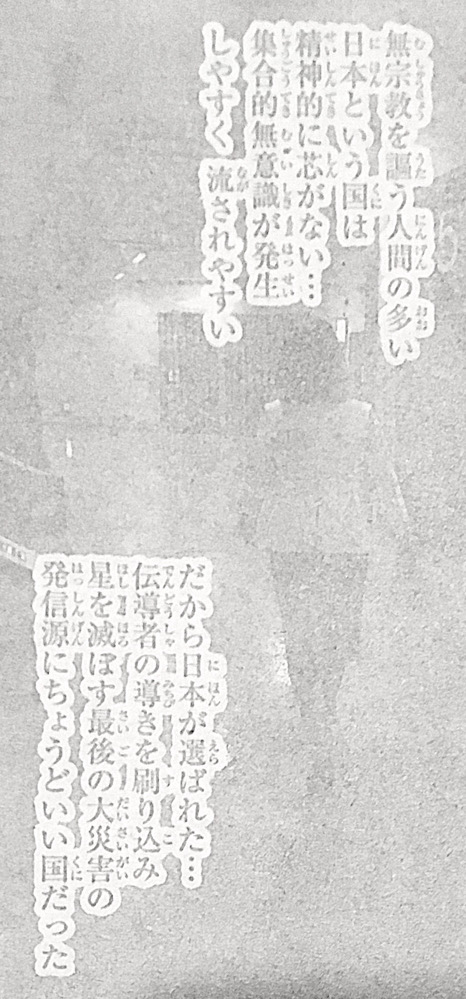 無宗教を謳う人間の多い
日本という国は
精神的に芯がない…
集合的無意識が発生
しやすく 流されやすい
だから日本が選ばれた…
伝導者の導きを刷り込み
星を滅ぼす最後の大災害の
発信源にちょうどいい国だった